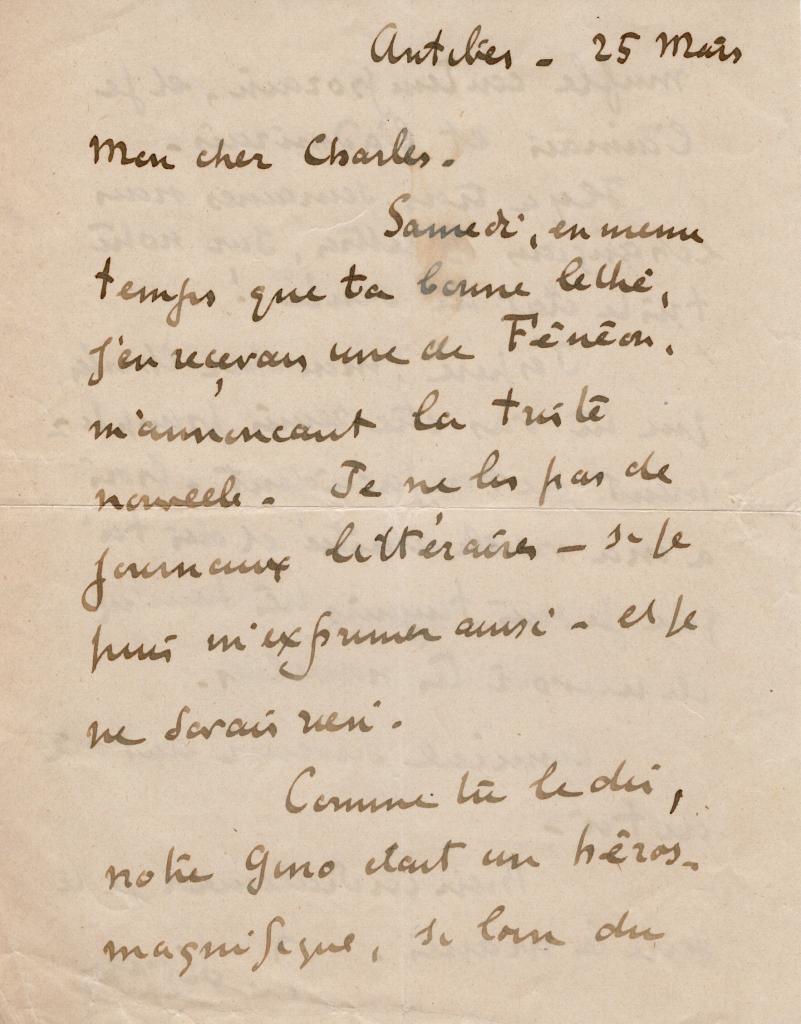 Antibes - 25 Mars
Mon cher Charles.
Samedi, en meme
temps que ta bonne lettre,
j'en recevais une de Fénéon,
m'annonçant la triste
nouvelle. Je ne lis pas de
journaux littéraires - si je
puis m'exprimer ainsi - et je
ne savais rien.
Comme tu le dis,
notre Gino était un héros
magnifique, si loin du